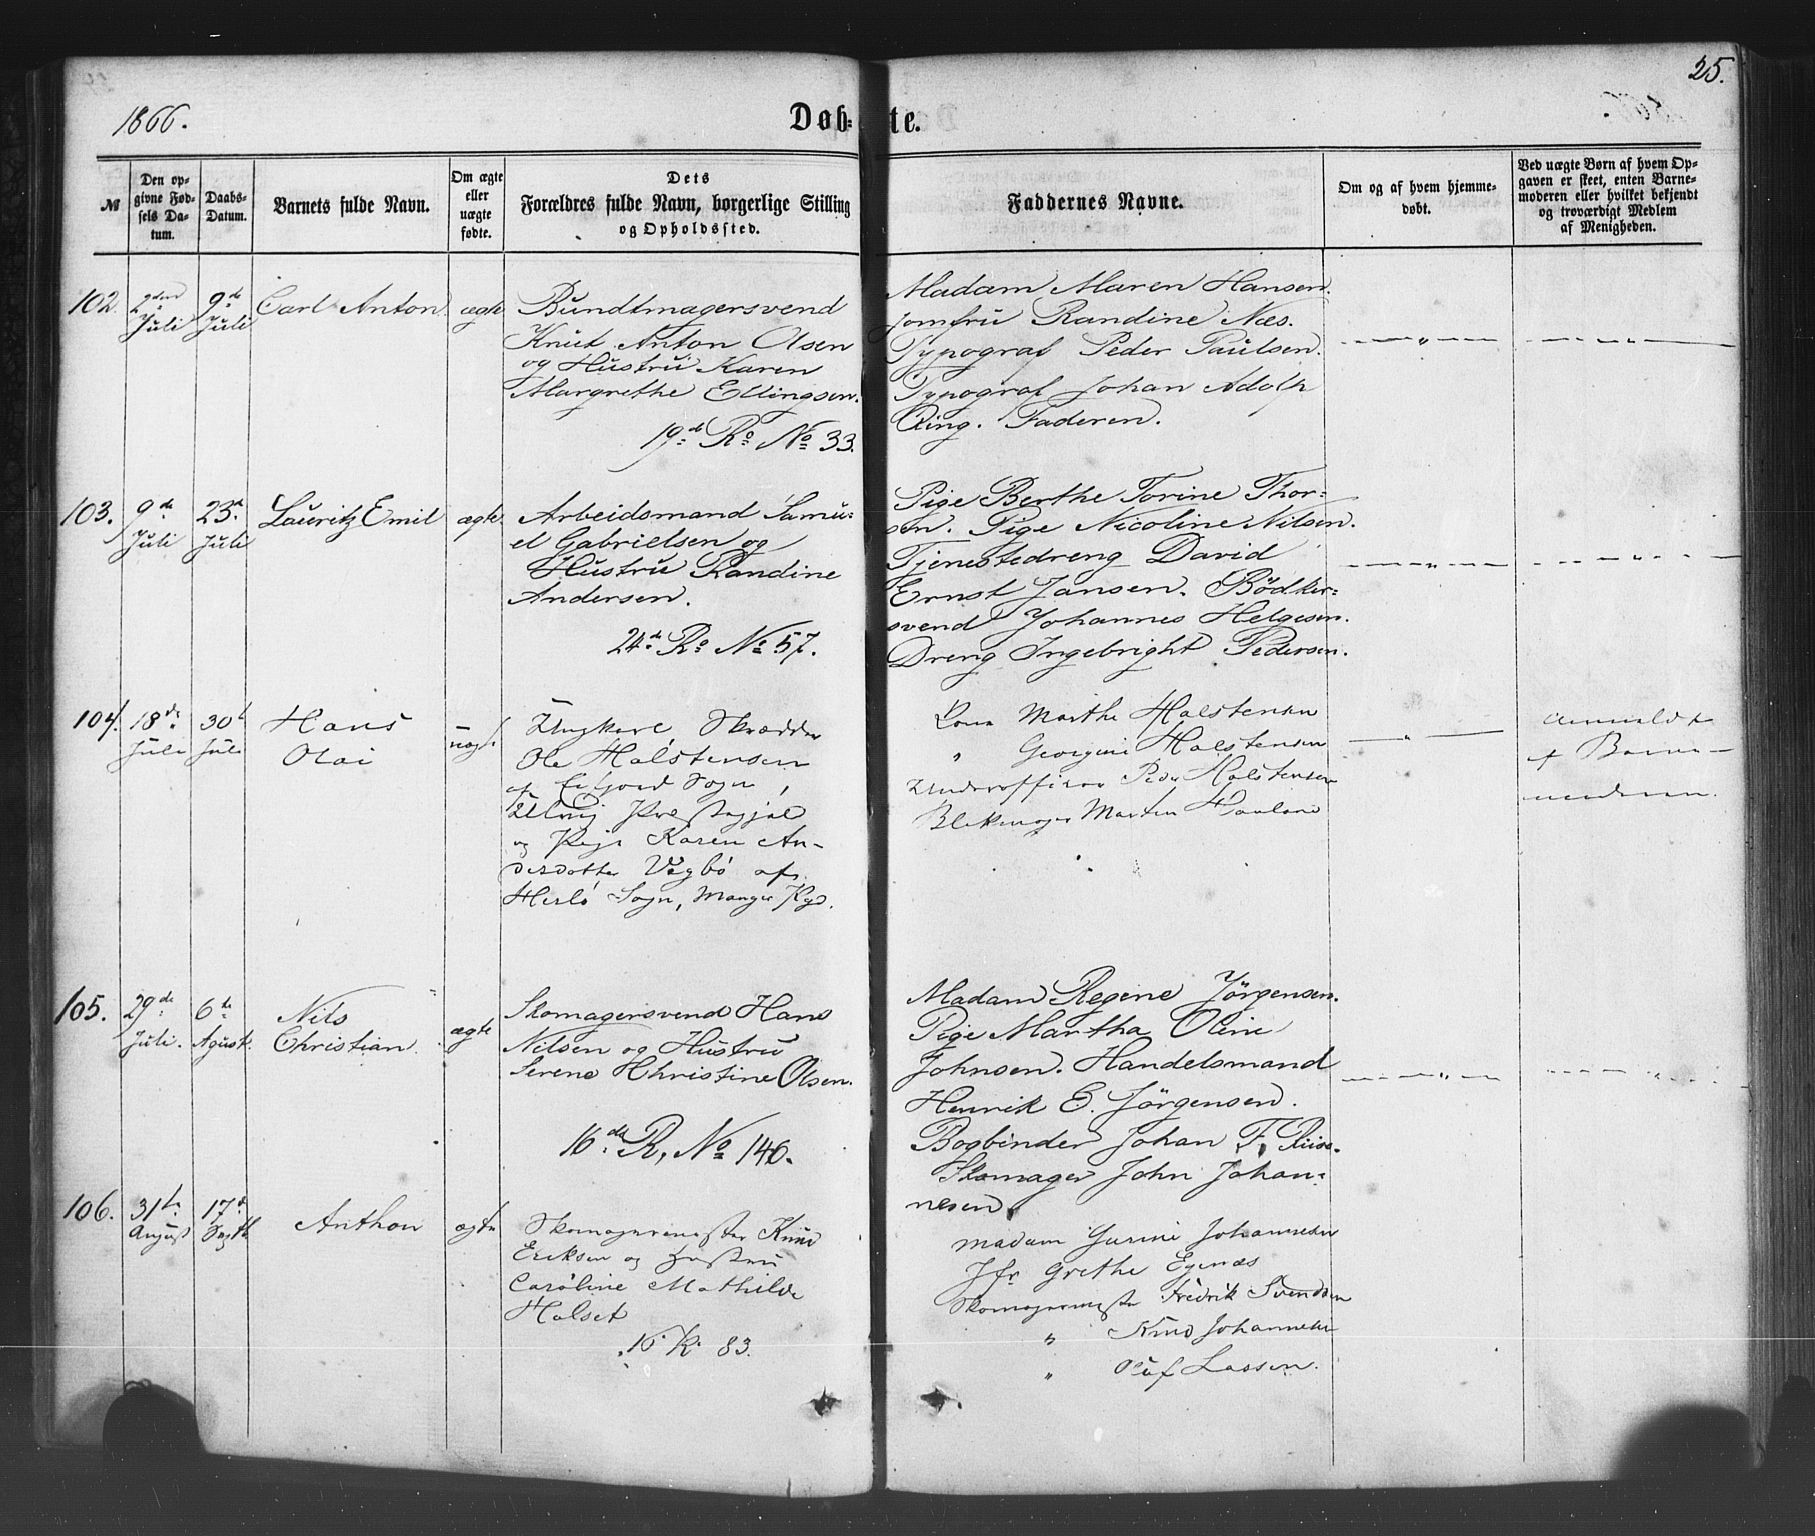 25.
1866.
Døb-
te.
№
Den op-
givne Fød-
sels Da-
tum.
Daabs-
Datum.
Barnets fulde Navn.
Om ægte
eller
uægte
fødte.
Dets
Forældres fulde Navn, borgerlige Stilling
og Opholdssted.
Faddernes Navne.
Om og af hvem hjemme-
døbt.
Ved uægte Børn af hvem Op-
gaven er skeet, enten Barne-
moderen eller hvilket bekjendt
og troværdigt Medlem
af Menigheden.
102.
Juli
9de
Juli
Carl Anton.
ægte
Bundtmagersvend
Knut Anton Olsen
og Hustru Karen
Margrethe Ellingsen.
19de Ro No 33.
Madam Maren Hansen.
Jomfru Randine Næs.
Typograf Peder Paulsen.
Typograf Johan Adolf
Ring. Faderen.
103.
9de
Juli
23d
Juli
Lauritz Emil
ægte
Arbeidsmand Samu-
el Gabrielsen og
Hustru Randine
Andersen.
24de Ro No 57.
Pige Berthe Torine Thor-
sen. Pige Nicoline Nilsen.
Tjenestedreng David
Ernst Jansen. Bödker-
svend Johannes Helgesen.
Dreng Ingebright Pedersen.
104.
18de
Juli
30t
Juli
Hans
Olai
uægt
Ungkarl, Skrædder
Ole Halstensen
af Eifjord Sogn,
Ulvig Præstegjæl
og Pige Karen An-
dersdatter Vægbö af
Herlö Sogn, Manger Pgd.
Kone Marthe Halstensen
" Georgine Halstensen
Underofficer Peder Halstensen
Martin
anmeldt
af Barne-
moderen.
105.
29de
Juli.
6te
Agust.
Nils
Christian.
ægte
Skomagersvend Hans
Nilsen og Hustru
Serene Christine Olsen.
16de R, No 140.
Madam Regine Jörgensen.
Pige Martha Oline
Johnsen. Handelsmand
Henrik E. Jörgensen.
Bogbinder Johan F. Riise.
Skomager John Johan-
nesen.
106.
31te
August
17d
Septb
Anthon
ægte
Skomagermester Knud
Eriksen og Hustru
Caroline Mathilde
Halset
16. R. 83.
Madam Gurine Johannesen
Jfr Grethe Egenæs
Skomagermester Fredrik Svendsen
" Knud Johannesen
" Oluf Lassen.